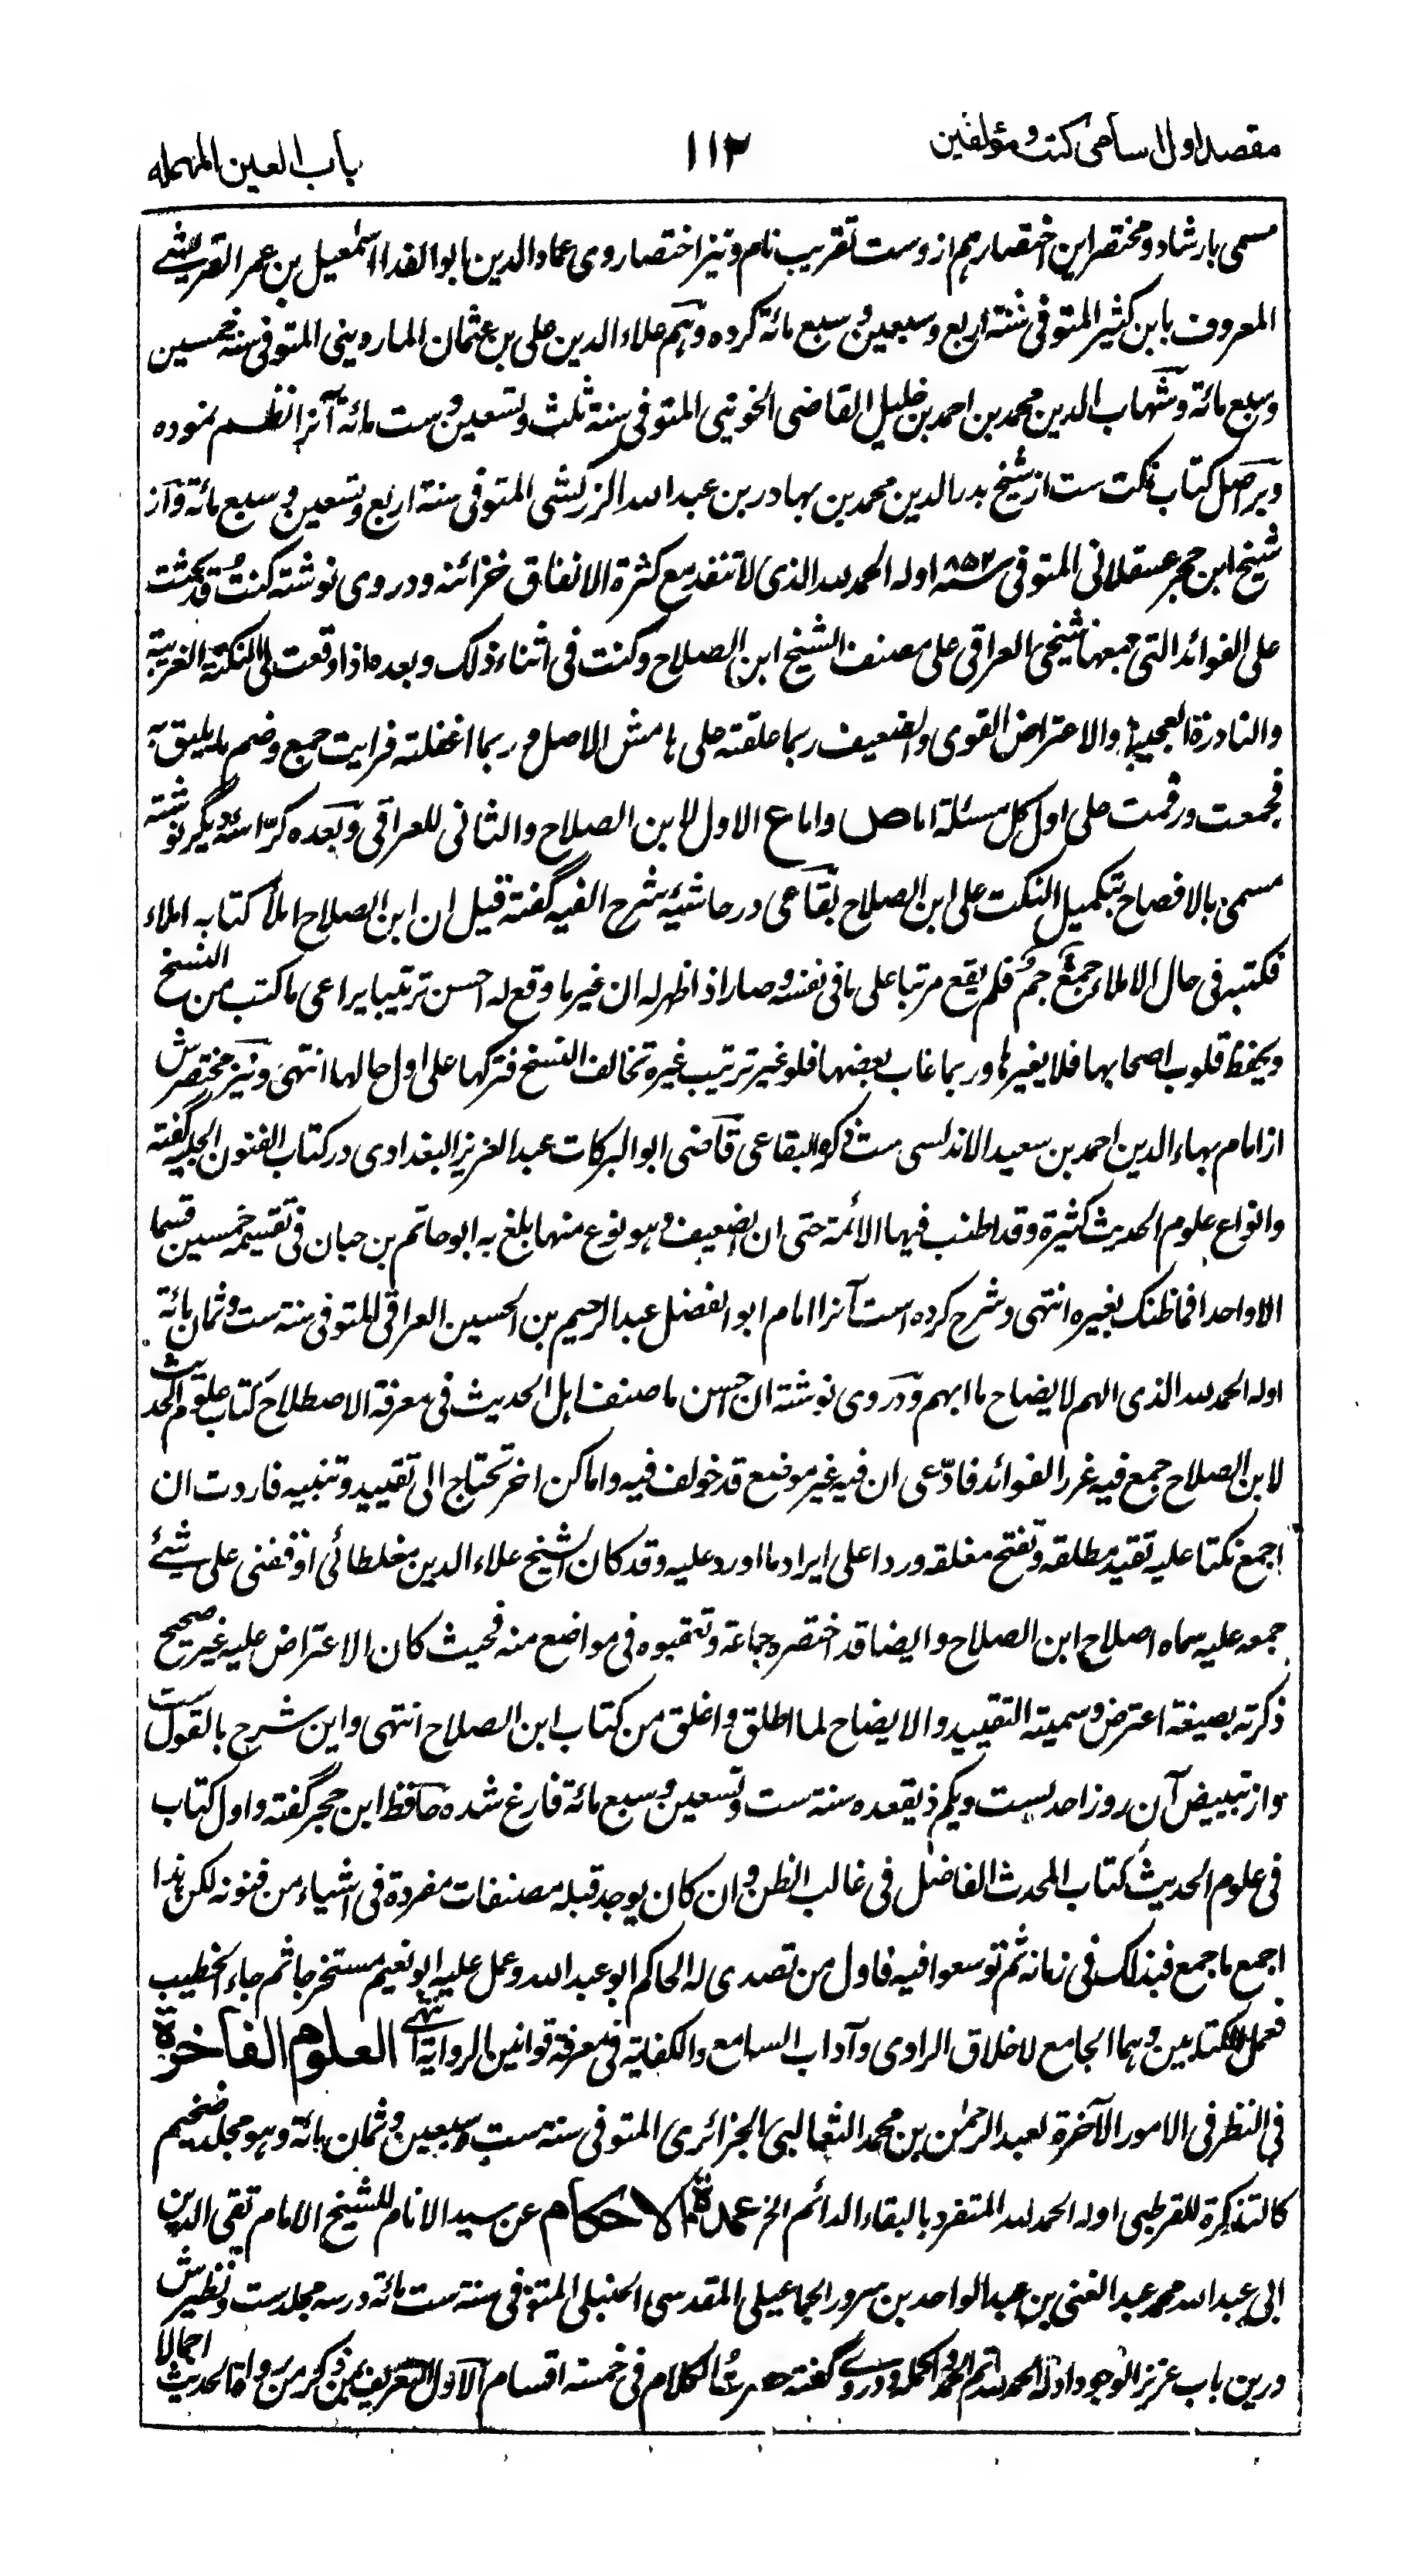 مقصد اول اسامی کتب و مؤلفین ۱۱۲ باب العین المهمله
مسمی بارشاد و مختصر این اختصار هم ازوست تقریب نام و نیز اختصار وی عماد الدین ابو الفدا اسمٰعیل بن عمر القریشی
المعروف بابن کثیر المتوفی سنة اربع و سبعین و سبع مائة کرده و هم علاء الدین علی بن عثمان الماردینی المتوفی سنة خمسین
و سبع مائة و شهاب الدین محمد بن احمد بن خلیل القاضی الخویی المتوفی سنة ثلث و تسعین و ست مائة آنرا نظم نموده
و بر اصل کتاب نکت ست از شیخ بدر الدین محمد بن بهادر بن عبد الله الزرکشی المتوفی سنة اربع و تسعین و سبع مائة و از
شیخ ابن حجر عسقلانی المتوفی سنه ۸۵۲ اوله الحمد لله الذی لا تنفد مع کثرة الانفاق خزائنه و در وی نوشته کنت قد بحثت
علی الفوائد التی جمعها شیخی العراقی علی مصنف الشیخ ابن الصلاح و کنت فی اثناء ذلک و بعده اذا وقعت لی النکتة الغریبة
والنادرة العجیبة والاعتراض القوی والضعیف ربما علقته علی هامش الاصل و ربما اغفلته فرایت جمع و ضم ما یلیق به
فجمعت و رقمت علی اول کل مسئلة اما ص و اما ع الاول لابن الصلاح والثانی للعراقی و بعده کرّاسهٔ دیگر نوشته
مسمی بالافصاح بتکمیل النکت علی ابن الصلاح بقاعی در حاشیهٔ شرح الفیه گفته قیل ان ابن الصلاح املأ کتابه املاء
فکتبه فی حال الاملاء جمع جم فلم یقع مرتبا علی ما فی نفسه و صار اذا ظهر له ان غیر ما وقع له احسن ترتیبا یراعی ما کتب من النسخ
و یحفظ قلوب اصحابها فلا یغیرها و ربما غاب بعضها فلو غیر ترتیب غیره تخالف النسخ فترکها علی اول حالها انتهی و نیز مختصرش
از امام بهاء الدین احمد بن سعید الاندلسی ست ذکره البقاعی قاضی ابو البرکات عبد العزیز البغدادی در کتاب الفنون الجلیة گفته
و انواع علوم الحدیث کثیرة و قد اطنب فیها الأئمة حتی ان الضعیف و هو نوع منها بلغ به ابو حاتم بن حبان فی تقسیمه خمسین قسما
الا واحدا فما ظنک بغیره انتهی و شرح کرده است آنرا امام ابو الفضل عبد الرحیم بن الحسین العراقی المتوفی سنة ست و ثمان مائة
اوله الحمد لله الذی الهم لایضاح ما ابهم و در وی نوشته ان احسن ما صنف اهل الحدیث فی معرفة الاصطلاح کتاب علوم الحدیث
لابن الصلاح جمع فیه غرر الفوائد فادّعی ان فیه غیر موضع قد خولف فیه و اماکن اخر تحتاج الی تقیید و تنبیه فاردت ان
اجمع نکتا علیه تقید مطلقه و تفتح مغلقه وردا علی ایراد ما اورد علیه و قد کان الشیخ علاء الدین مغلطائی اوقفنی علی شیئ
جمعه علیه سماه اصلاح ابن الصلاح و ایضا قد اختصره جماعة و تعقبوه فی مواضع منه فحیث کان الاعتراض علیه غیر صحیح
ذکرته بصیغة اعترض و سمیته التقیید والایضاح لما اطلق و اغلق من کتاب ابن الصلاح انتهی و این شرح بالقول ست
و از تبییض آن روز احد بست و یکم ذیقعده سنة ست و تسعین و سبع مائة فارغ شده حافظ ابن حجر گفته و اول کتاب
فی علوم الحدیث کتاب المحدث الفاضل فی غالب الظن و ان کان یوجد قبله مصنفات مفردة فی اشیاء من فنونه لکن هذا
اجمع ما جمع فبذلک فی زمانه ثم توسعوا فیه فاول من تصدی له الحاکم ابو عبد الله و عمل علیه ابو نعیم مستخرجا ثم جاء الخطیب
فعمل الکتابین و هما الجامع لاخلاق الراوی و آداب السامع والکفایة فی معرفة قوانین الروایة انتهی العلوم الفاخرة
فی النظر فی الامور الآخرة لعبد الرحمٰن بن محمد الثعالبی الجزائری المتوفی سنة ست و سبعین و ثمان مائة و هو مجلد ضخیم
کالتذکرة للقرطبی اوله الحمد لله المتفرد بالبقاء الدائم الخ عمدة الاحکام عن سید الانام للشیخ الامام تقی الدین
ابی عبد الله محمد عبد الغنی بن عبد الواحد بن سرور الجماعیلی المقدسی الحنبلی المتوفی سنة ست مائة در سه مجلد ست و نظیرش
درین باب عزیز الوجود اوله الحمد لله اتم الحمد و اکمله و در وی گفته حصرت الکلام فی خمسة اقسام الاول التعریف بمن ذکر من رواة الحدیث اجمالا